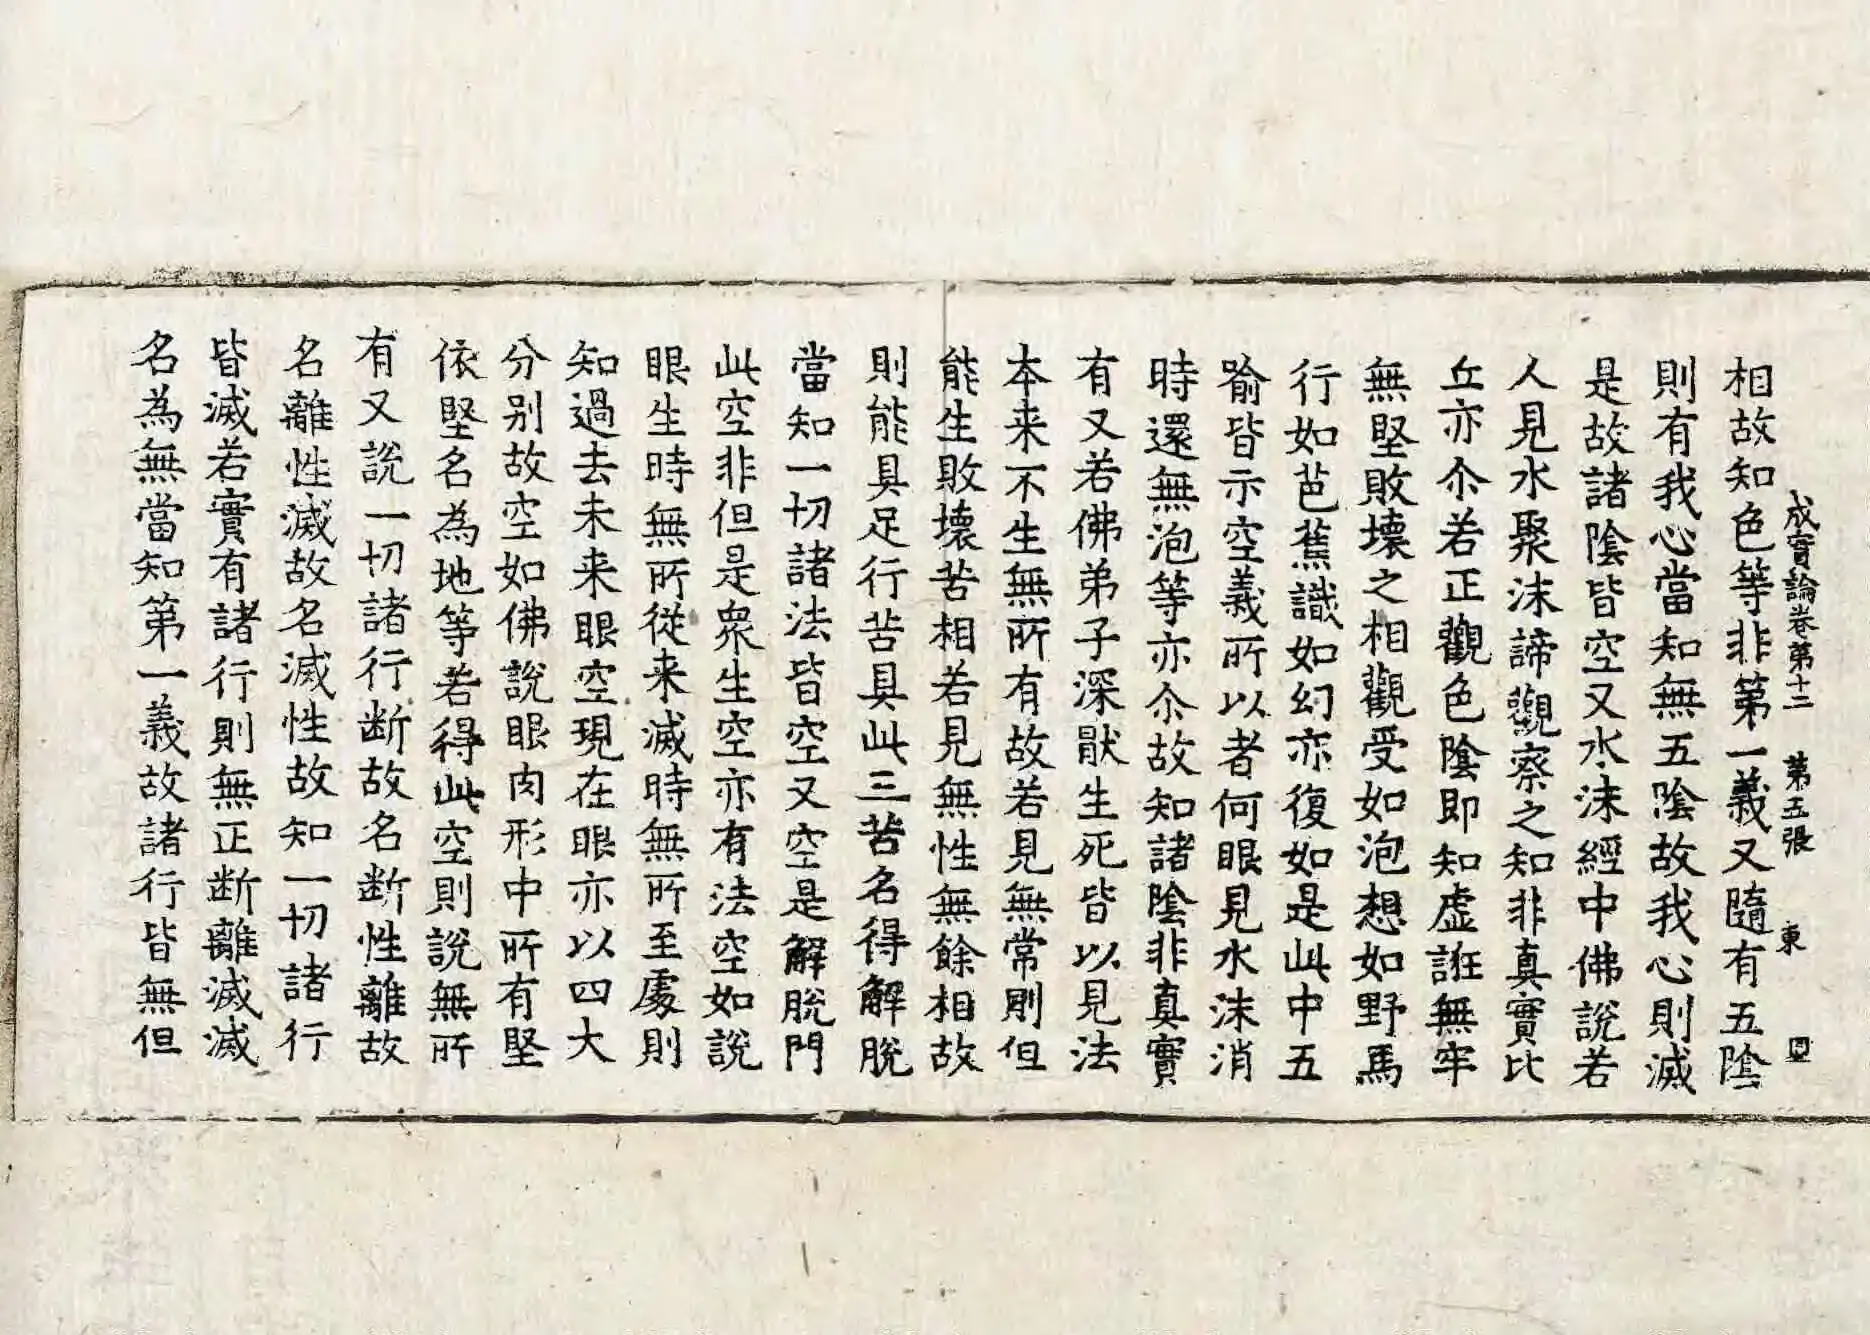 成實論卷第十二 第五張 東
相故知色等非第一義又隨有五隂
則有我心當知無五隂故我心則滅
是故諸隂皆空又水沫經中佛說若
人見水聚沫諦觀察之知非真實比
丘亦尒若正觀色隂即知虛誑無牢
無堅敗壞之相觀受如泡想如野馬
行如芭蕉識如幻亦復如是此中五
喻皆示空義所以者何眼見水沫消
時還無泡等亦尒故知諸隂非真實
有又若佛弟子深猒生死皆以見法
本来不生無所有故若見無常則但
能生敗壞苦相若見無性無餘相故
則能具足行苦具此三苦名得解脫
當知一切諸法皆空又空是解脫門
此空非但是衆生空亦有法空如說
眼生時無所從来滅時無所至處則
知過去未来眼空現在眼亦以四大
分别故空如佛說眼肉形中所有堅
依堅名為地等若得此空則說無所
有又說一切諸行断故名断性離故
名離性滅故名滅性故知一切諸行
皆滅若實有諸行則無正断離滅滅
名為無當知第一義故諸行皆無但